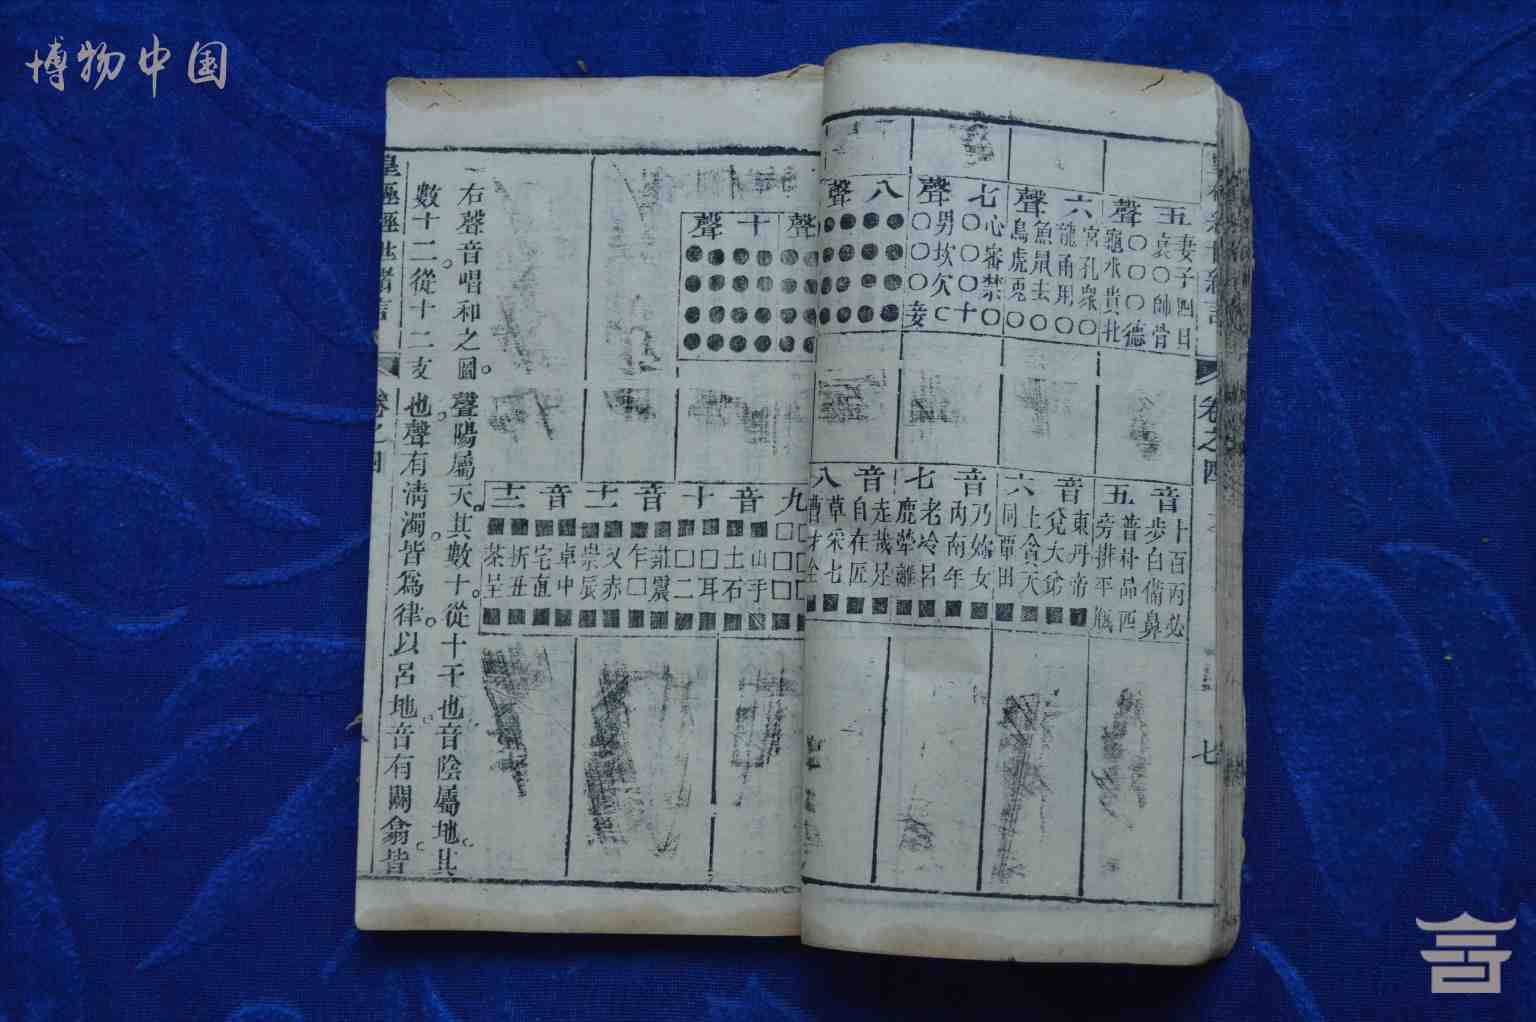 博物中国
五聲
妻子四日
衰○帥骨
○○○德
龜水貴北
六聲
宮孔衆○
龍甬用○
魚鼠去○
烏虎兎○
七聲
心審禁○
○○○十
男坎欠○
○○○妾
八聲
●●●●
●●●●
●●●●
●●●●
聲
十聲
●●●●
●●●●
●●●●
●●●●
音五
十百丙必
步白僃鼻
普朴品匹
旁排平瓶
音六
東丹帝■
兌大弟■
土貪天■
同覃田■
音七
乃妳女■
內南年■
老冷呂■
鹿犖離■
音八
走哉足■
自在匠■
草采七■
曹才全■
九音
□□□
□□□
■山手■
■土石■
十音
■□耳■
■□二■
十一音
■莊震■
■乍□■
■叉赤■
■崇辰■
十二音
■卓中■
■宅直■
■坼丑■
■茶呈■
右聲音唱和之圖。聲陽屬天。其數十。從十干也。音陰屬地。其
數十二。從十二支也。聲有淸濁。皆爲律。以呂地。音有闢翕。皆
皇極經世緒言
卷之四
卷之四
七